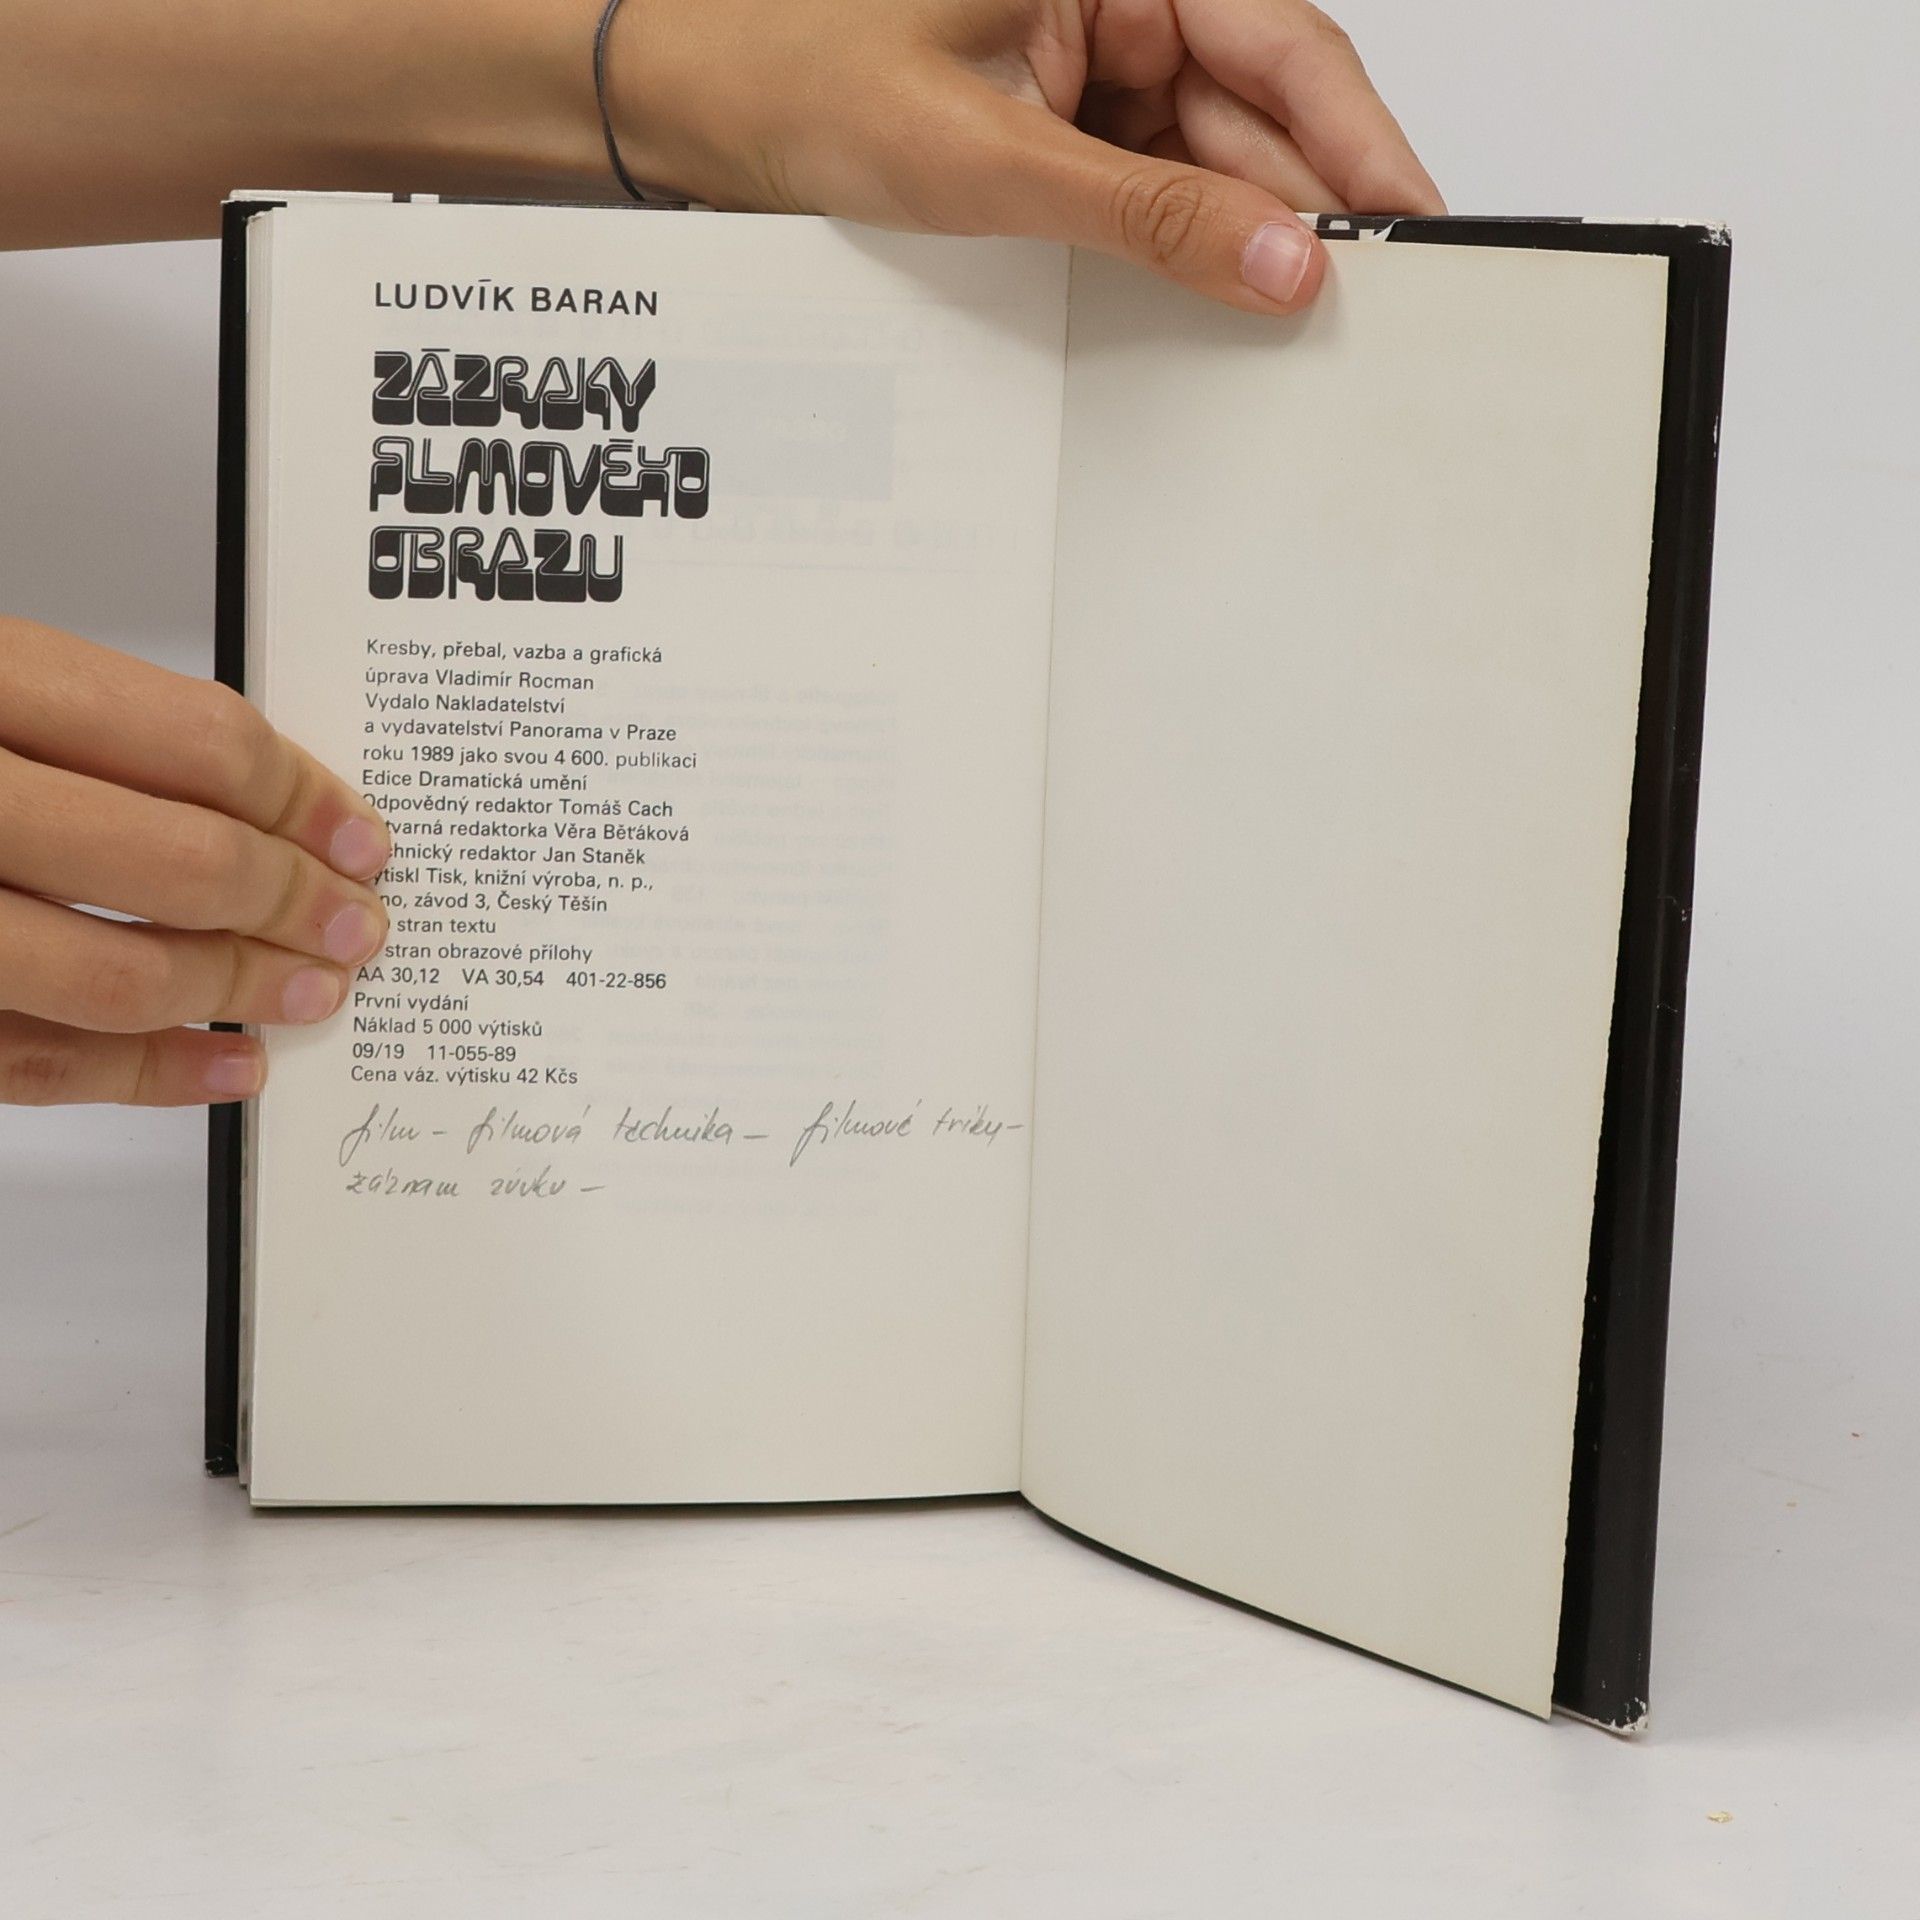 LUDVÍK BARAN
ZÁZRAKY
FILMOVÉHO
OBRAZU
Kresby, přebal, vazba a grafická
úprava Vladimír Rocman
Vydalo Nakladatelství
a vydavatelství Panorama v Praze
roku 1989 jako svou 4 600. publikaci
Edice Dramatická umění
Odpovědný redaktor Tomáš Cach
tvarná redaktorka Věra Běťáková
chnický redaktor Jan Staněk
ytiskl Tisk, knižní výroba, n. p.,
no, závod 3, Český Těšín
stran textu
stran obrazové přílohy
AA 30,12 VA 30,54 401-22-856
První vydání
Náklad 5 000 výtisků
09/19 11-055-89
Cena váz. výtisku 42 Kčs
film – filmová technika – filmové triky –
záznam zvuku –